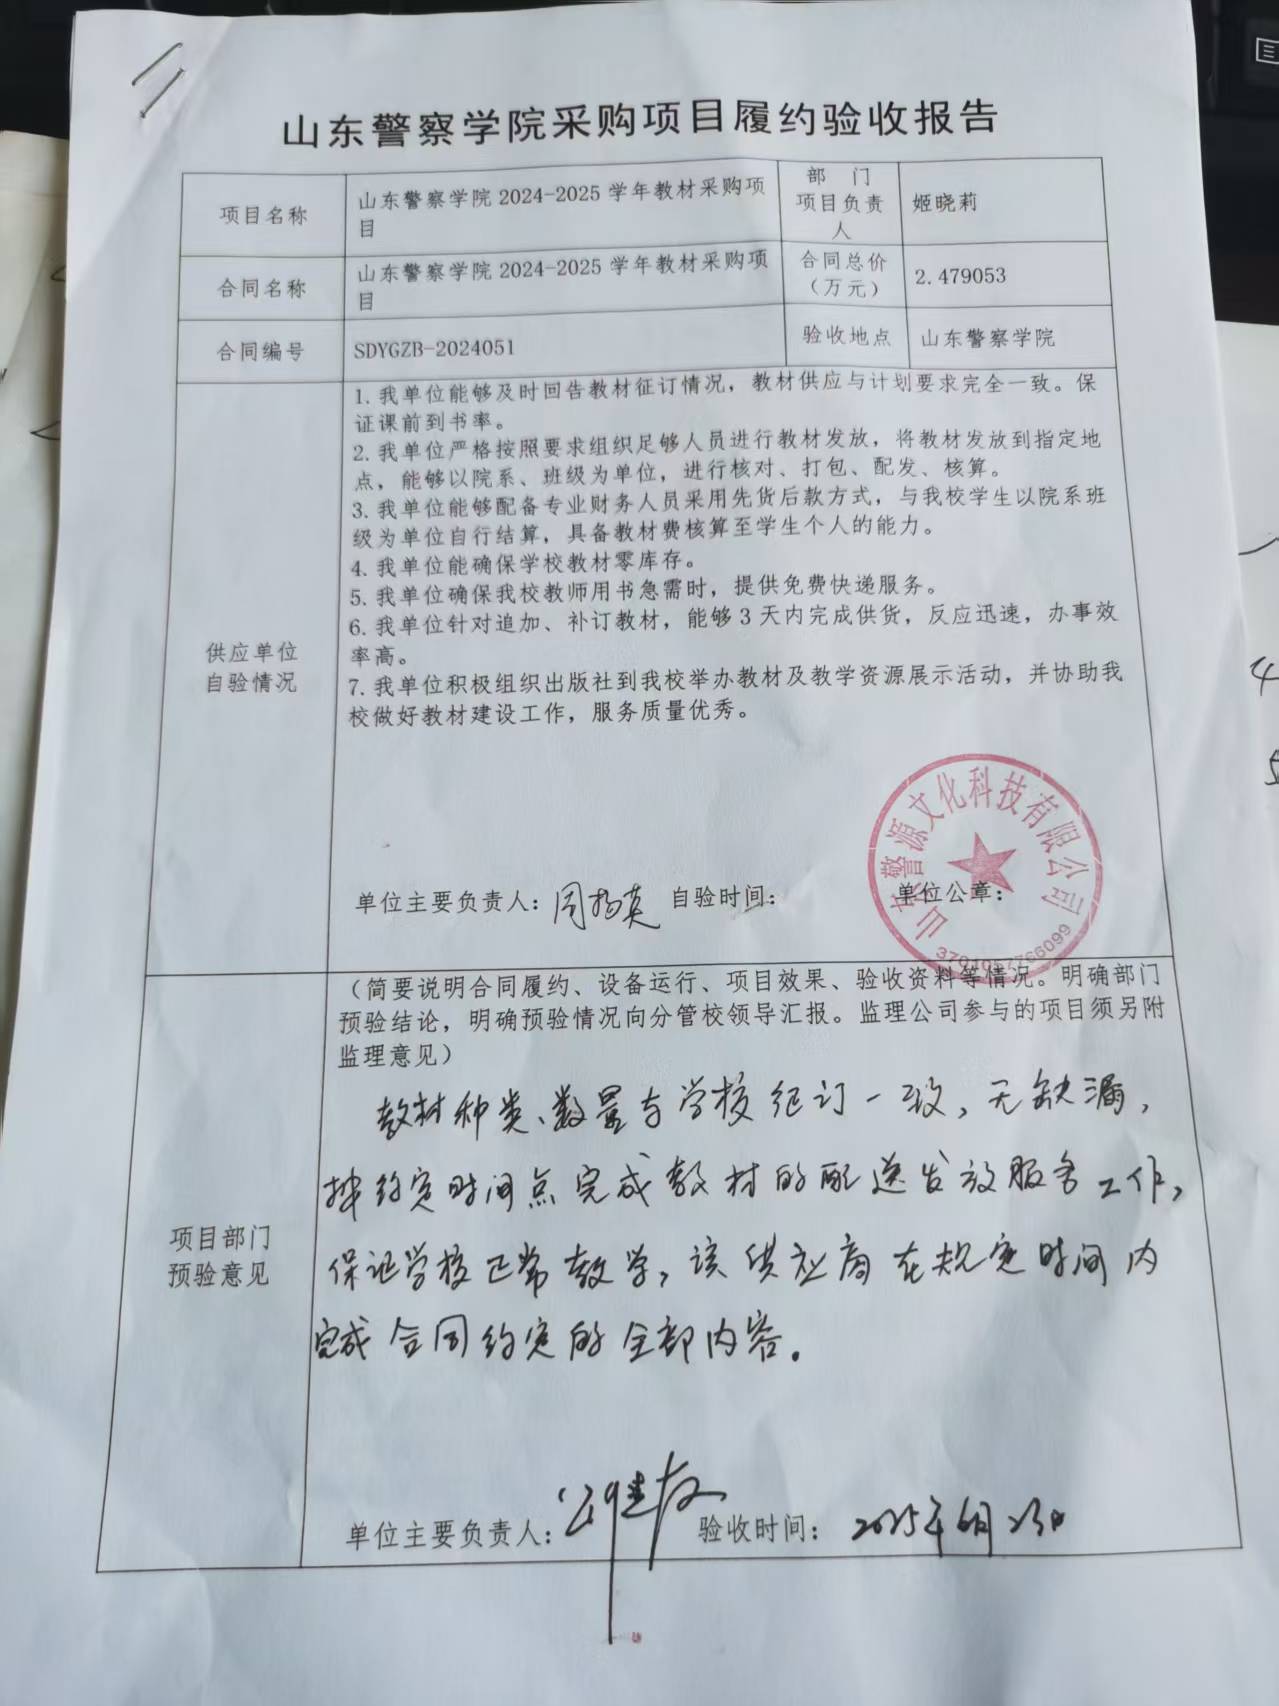 山东警察学院采购项目履约验收报告
项目名称
山东警察学院 2024-2025 学年教材采购项
目
部 门
项目负责
人
姬晓莉
合同名称
山东警察学院 2024-2025 学年教材采购项
目
合同总价
（万元）
2.479053
合同编号
SDYGZB-2024051
验收地点
山东警察学院
供应单位
自验情况
1. 我单位能够及时回告教材征订情况，教材供应与计划要求完全一致。保
证课前到书率。
2. 我单位严格按照要求组织足够人员进行教材发放，将教材发放到指定地
点，能够以院系、班级为单位，进行核对、打包、配发、核算。
3. 我单位能够配备专业财务人员采用先货后款方式，与我校学生以院系班
级为单位自行结算，具备教材费核算至学生个人的能力。
4. 我单位能确保学校教材零库存。
5. 我单位确保我校教师用书急需时，提供免费快递服务。
6. 我单位针对追加、补订教材，能够 3 天内完成供货，反应迅速，办事效
率高。
7. 我单位积极组织出版社到我校举办教材及教学资源展示活动，并协助我
校做好教材建设工作，服务质量优秀。
山东警源文化科技有限公司
单位主要负责人：周扬英 自验时间： 单位公章：
项目部门
预验意见
（简要说明合同履约、设备运行、项目效果、验收资料等情况。明确部门
预验结论，明确预验情况向分管校领导汇报。监理公司参与的项目须另附
监理意见）
教材种类、数量与学校征订一致，无缺漏，
按约定时间点完成教材的配送发放服务工作，
保证学校正常教学，该供应商在规定时间内
完成合同约定的全部内容。
单位主要负责人： 验收时间：2025年6月23日